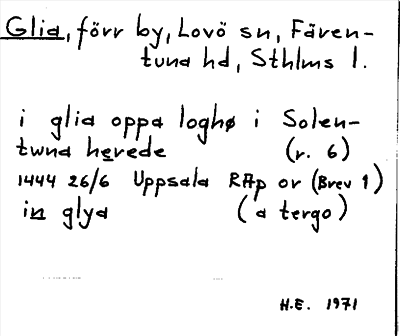 Glia, förr by, Lovö sn, Fären-
tuna hd, Sthlms l.
i glia oppa loghø i Solen-
twna herede (r. 6)
1444 26/6 Uppsala RAp or (Brev 1)
in glya (a tergo)
H.E. 1971